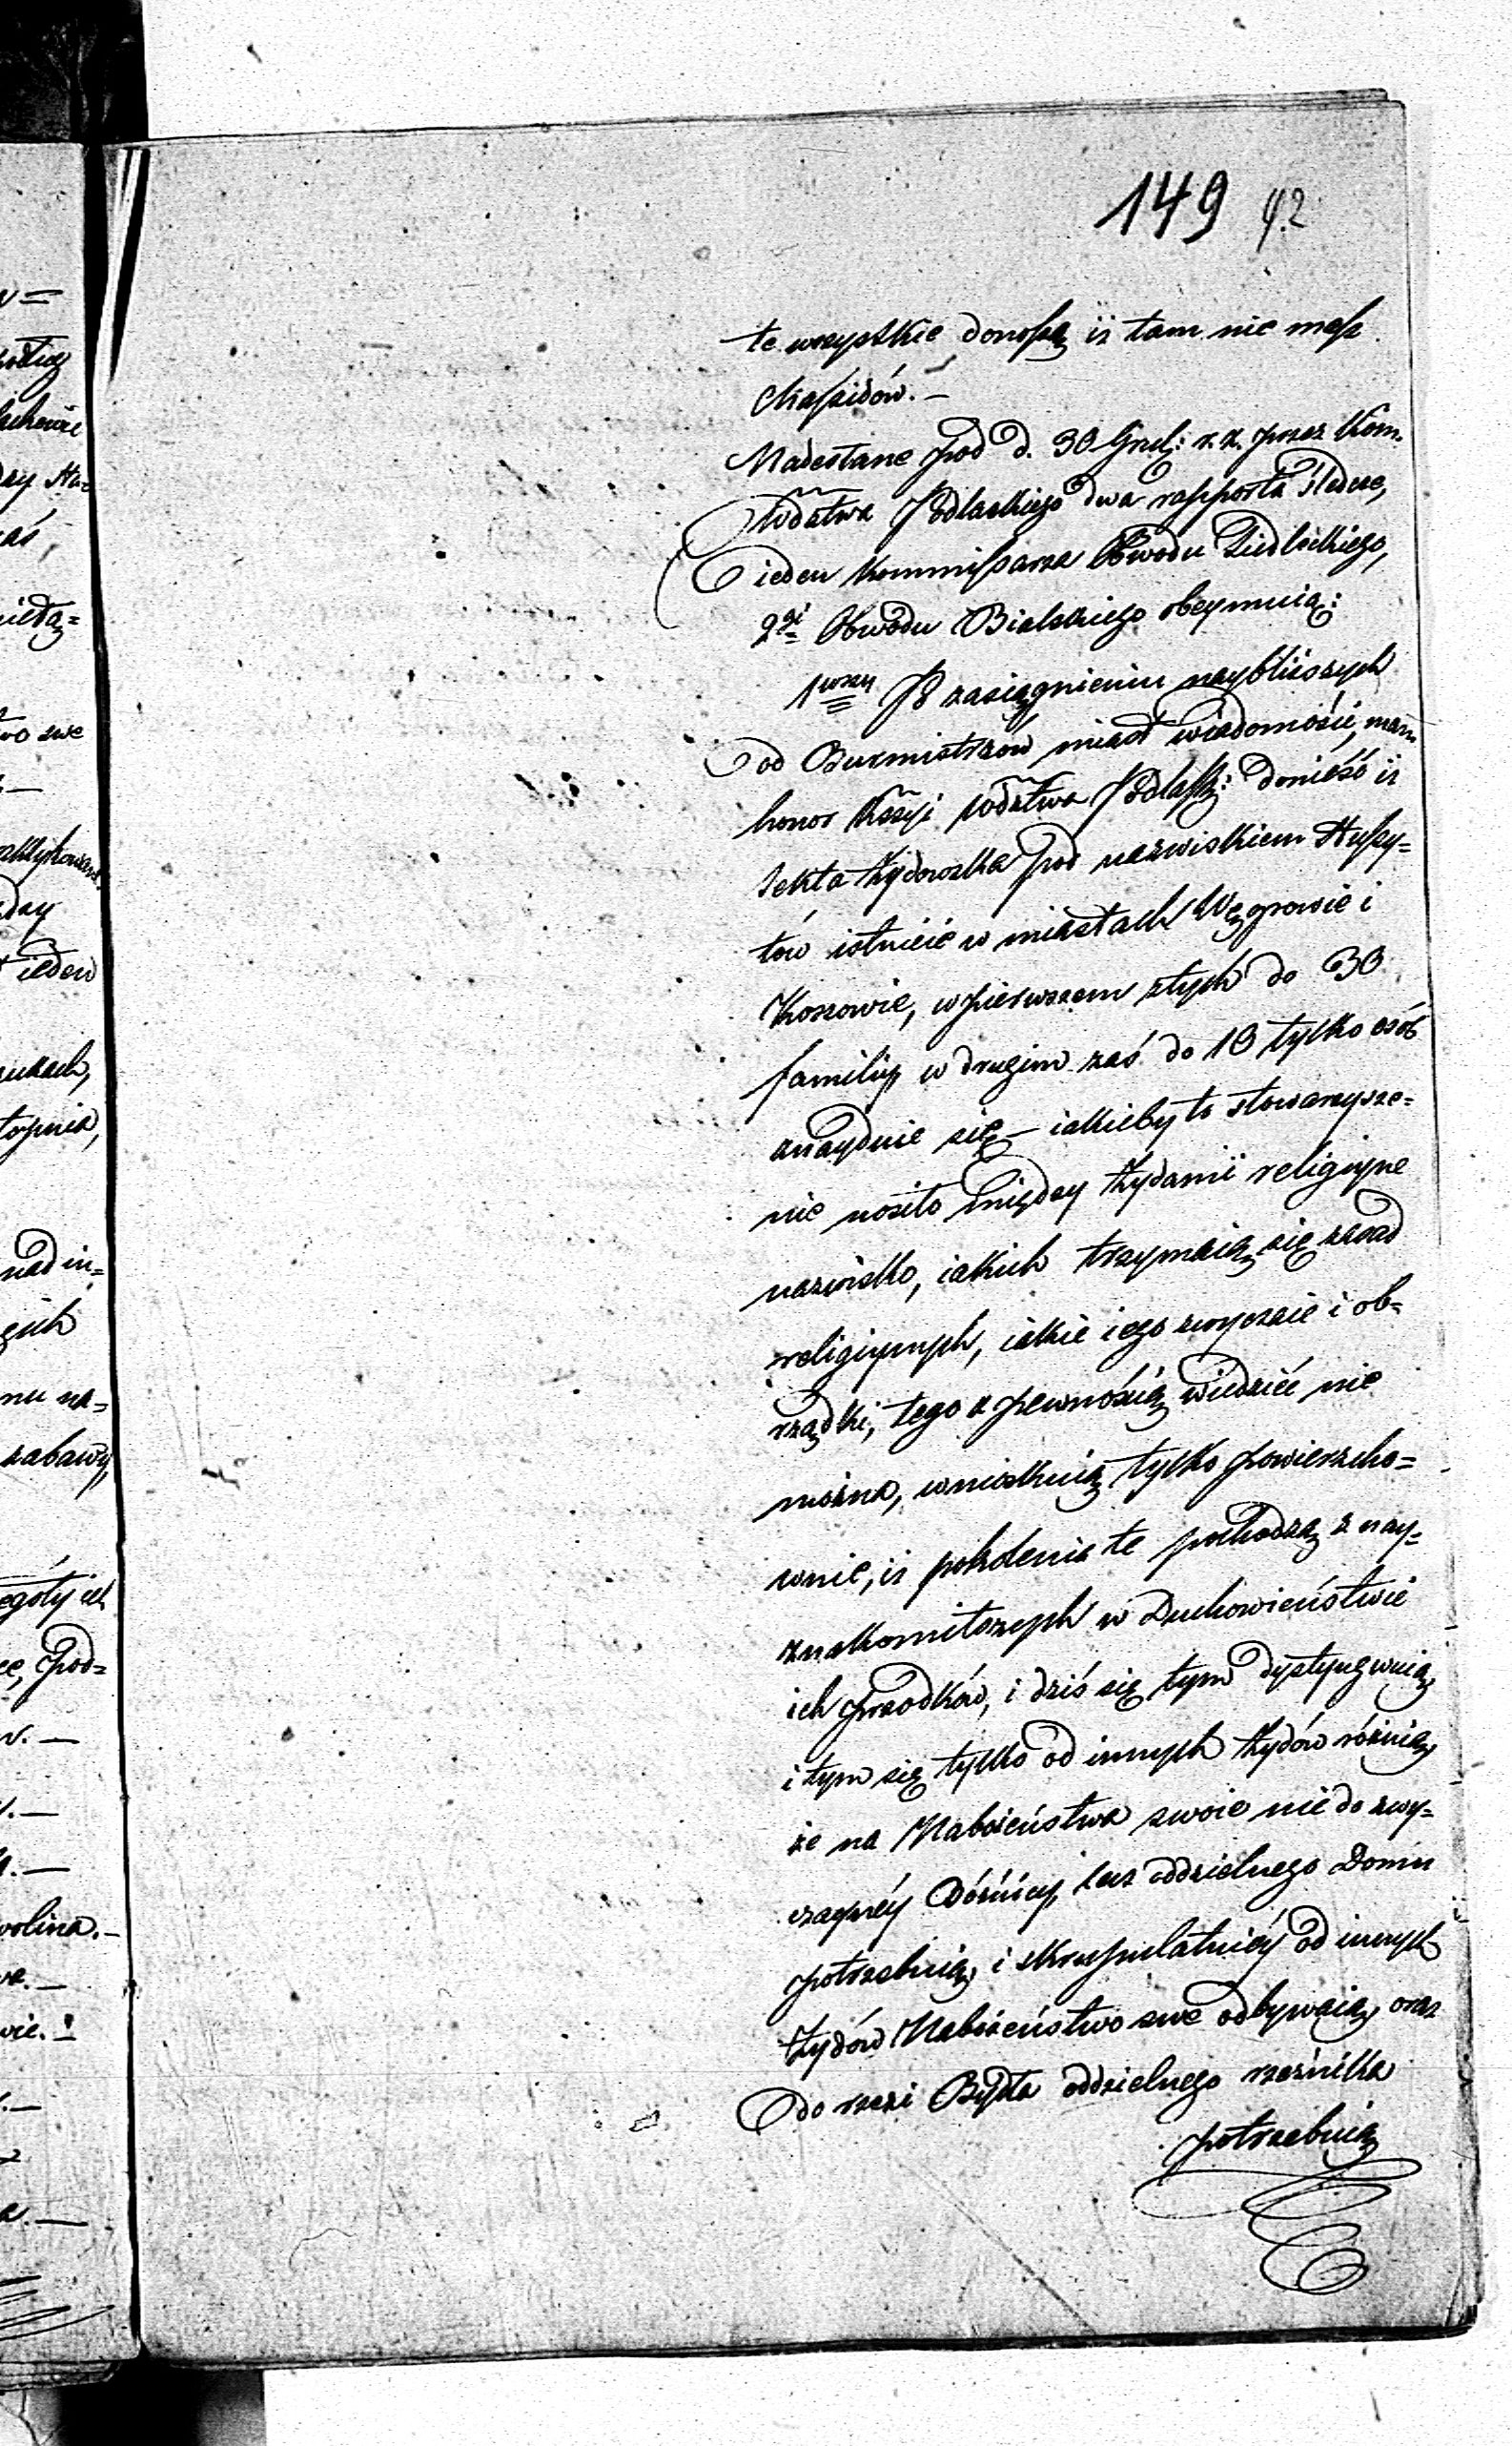 149 92
te wszystkie donoszą iż tam nie masz
Chassidów. —
Nadesłane pod d. 30 Grud: r. z. przez Kom.
Wdztwa Podlaskiego dwa rapporta Sledcze,
ieden Kommissarza Obwodu Siedleckiego,
2gi Obwodu Bialskiego obeymuią:
1wszy Po zasiągnieniu naybliższych
od Burmistrzów miast wiadomości, mam
honor Kssyi Wdztwa Podlask: donieść iż
Sekta żydowska pod nazwiskiem Hussy=
tów istnieie w miastach Węgrowie i
Kossowie, w pierwszem z tych do 30
familiy w drugim zaś do 10 tylko osób
znayduie się — iakieby to stowarzysze=
nie nosiło między żydami religiyne
nazwisko, iakich trzymaią się zasad
religiynych, iakie iego zwyczaie i ob=
rządki, tego z pewnością wiedzieć nie
można, wnioskuią tylko powierzcho=
wnie, iż pokolenia te pochodzą z nay=
znakomitszych w Duchowieństwie
ich przodków, i dziś się tym dystyngwuią
i tym się tylko od innych żydów różnią,
że na Nabożeństwa swoie nie do zwy=
czayney Bóżnicy, lecz oddzielnego Domu
potrzebuią, i skrupulatniey od innych
żydów Nabożeństwo swe odbywaią, oraz
do rzezi Bydła oddzielnego rzeźnika
potrzebuią